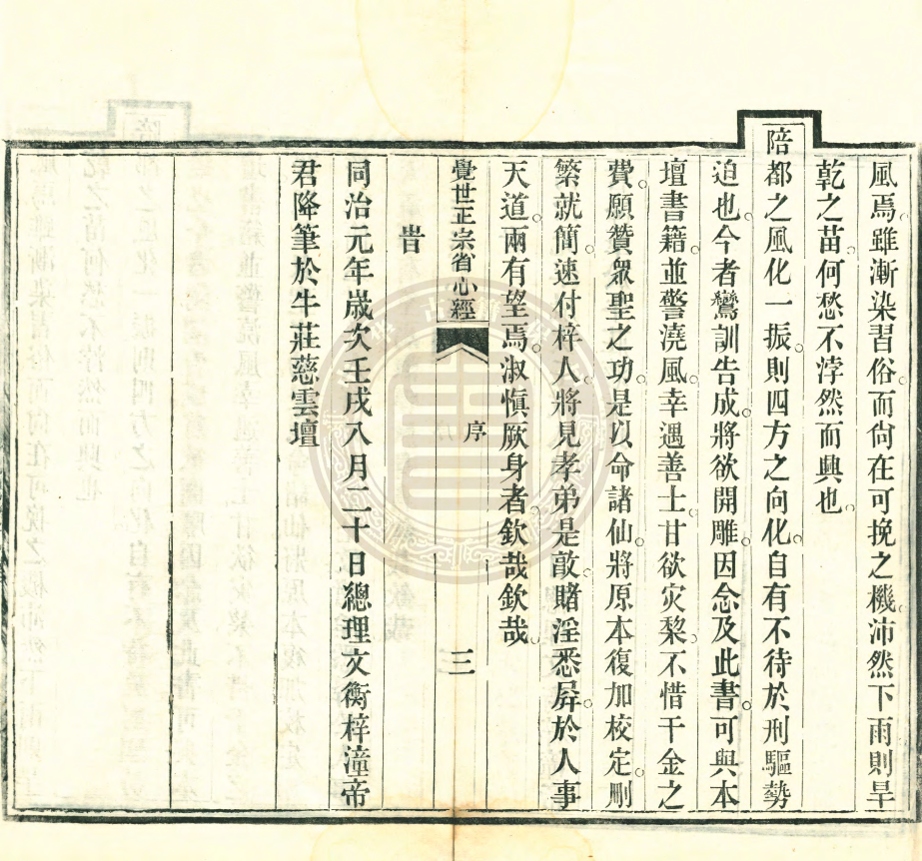 風焉。雖漸染習俗。而尙在可挽之機。沛然下雨。則旱
乾之苗。何愁不浡然而興也。
陪都之風化一振。則四方之向化。自有不待於刑驅勢
迫也。今者鸞訓告成。將欲開雕。因念及此書。可與本
壇書籍。並警澆風。幸遇善士。甘欲灾棃。不惜千金之
費。願贊衆聖之功。是以命諸仙。將原本復加校定。刪
繁就簡。速付梓人。將見孝弟是敦。賭淫悉屏。於人事
天道。兩有望焉。淑愼厥身者。欽哉欽哉。
覺世正宗省心經
序
三
旹
同治元年歲次壬戌八月二十日總理文衡梓潼帝
君降筆於牛莊慈雲壇